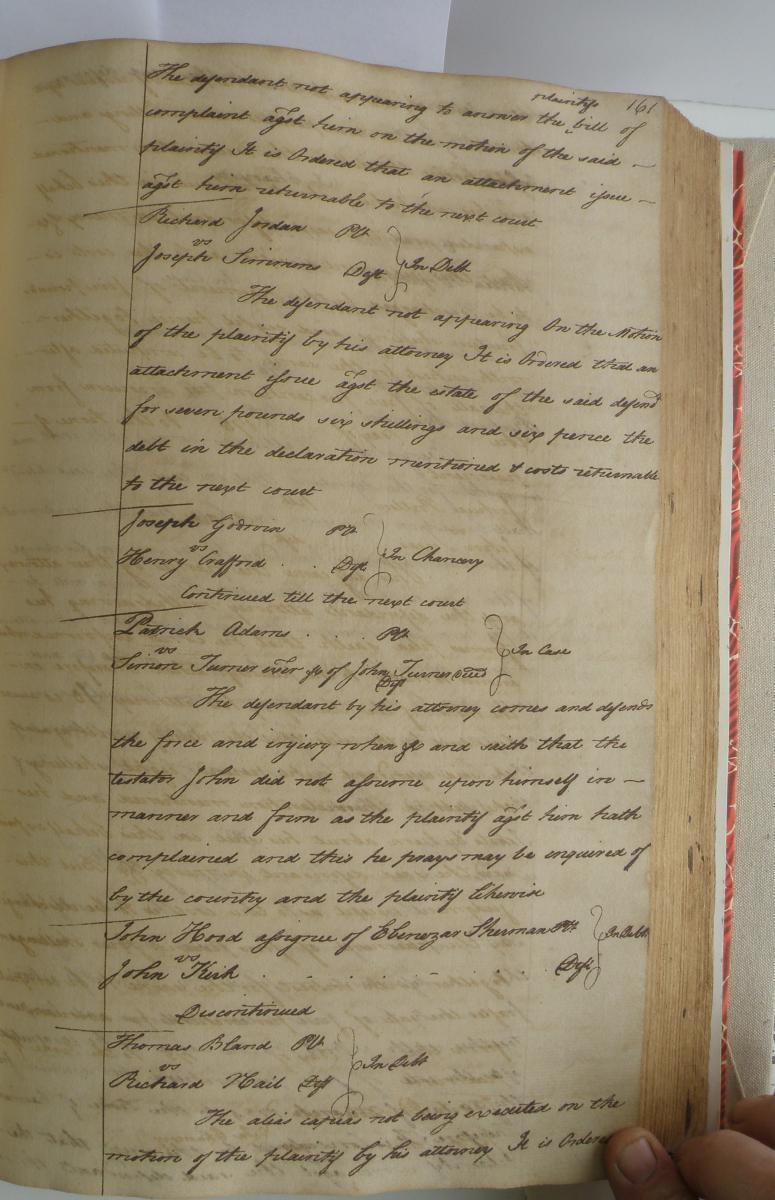 161
The defendant not appearing to answer the plaintifs bill of
complaint agst him on the motion of the said
plaintif It is Ordered that an attachment issue
agst him returnable to the next court
Richard Jordan Plt
vs
In Debt
Joseph Simmons Deft
The defendant not appearing On the Motion
of the plaintif by his attorney It is Ordered that an
attachment issue agst the estate of the said defend
for seven pounds six shillings and six pence the
debt in the declaration mentioned & costs returnable
to the next court
Joseph Godwin Plt
vs
In Chancery
Henry Crafford Deft
Continued till the next court
Patrick Adams Plt
vs
In Case
Simon Turner exer &c of John Turner deced
Deft
The defendant by his attorney comes and defends
the force and injury when &c and saith that the
testator John did not assume upon himself in
manner and form as the plaintif agst him hath
complained and this he prays may be enquired of
by the country and the plaintif likewise
John Hood assignee of Ebenezar Sherman Plt
vs
In Debt
John Kirk Deft
Discontinued
Thomas Bland Plt
vs
In Debt
Richard Hail Deft
The alias capias not being executed on the
motion of the plaintif by his attorney It is Ordered